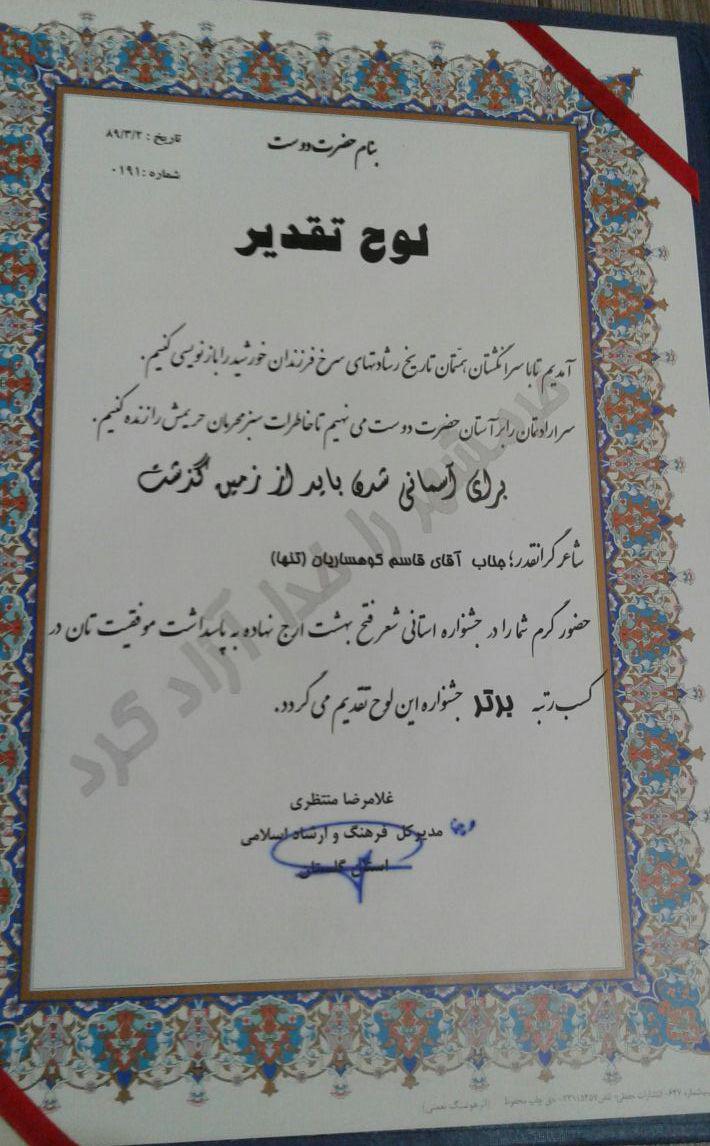 بنام حضرت دوست
تاریخ : ۸۹/۳/۲
شماره : ۰۱۹۱
لوح تقدیر
آمدیم تا با سرانگشتان همتمان تاریخ رشادتهای سرخ فرزندان خورشید را بازنویسی کنیم .
سر ارادتمان را بر آستان حضرت دوست می نهیم تا خاطرات سبز محرمان حریمش را زنده کنیم .
برای آسمانی شدن باید از زمین گذشت
شاعر گرانقدر؛ جناب آقای قاسم کوهساریان (تنها)
حضور گرم شما را در جشنواره استانی شعر فتح بهشت ارج نهاده به پاسداشت موفقیت تان در
کسب رتبه برتر جشنواره این لوح تقدیم می گردد.
خرمشهر را خدا آزاد کرد
غلامرضا منتظری
مدیرکل فرهنگ و ارشاد اسلامی
استان گلستان